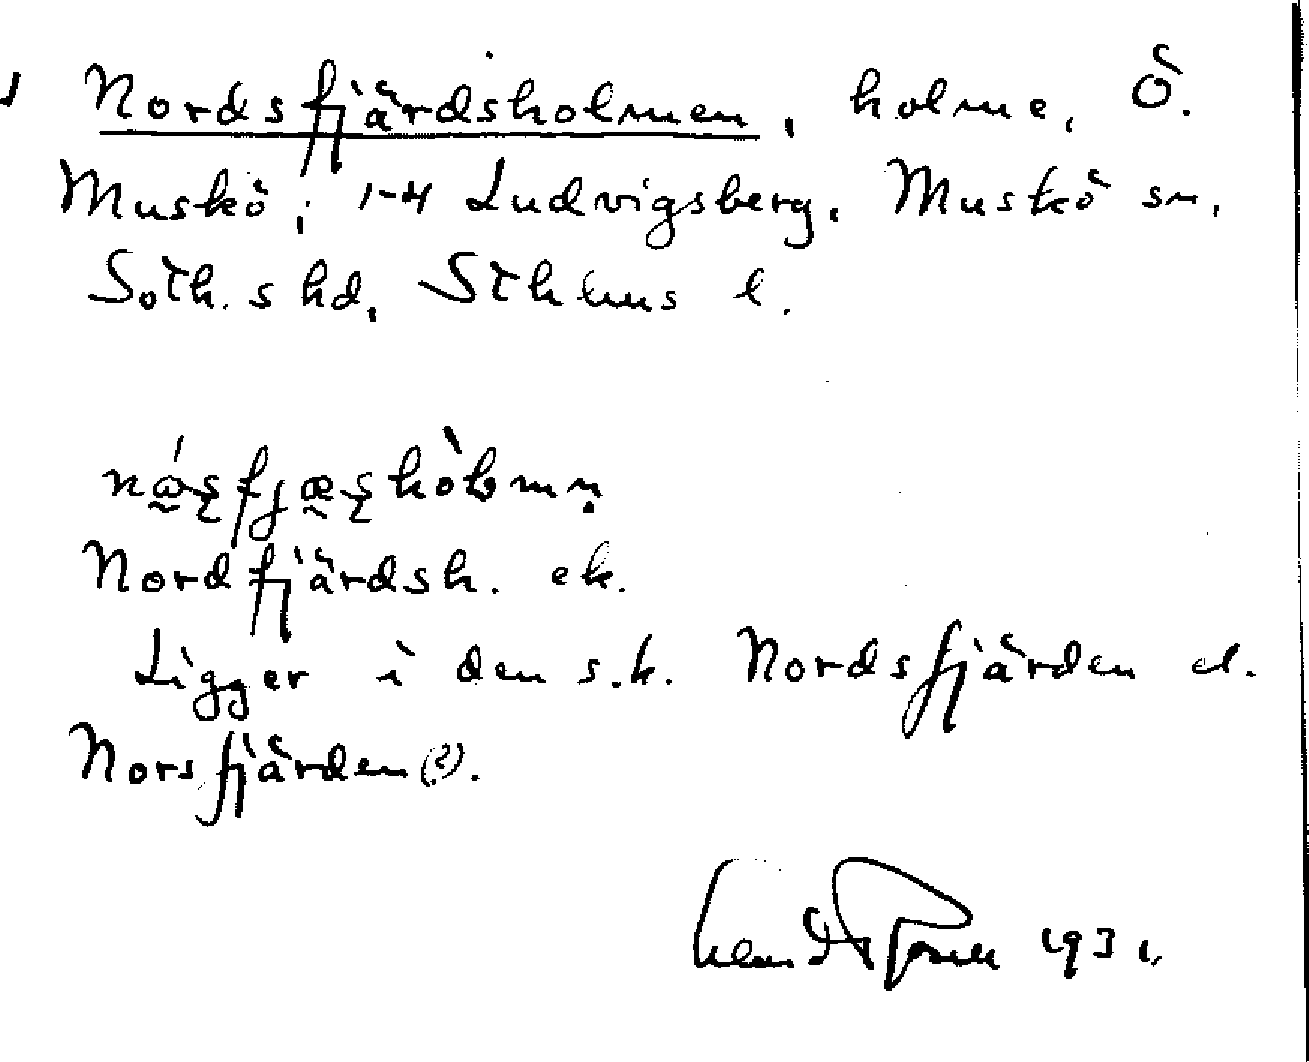 Nordsfjärdsholmen, holme, Ö.
Muskö; 1-4 Ludvigsberg. Muskö sn,
Soth. s hd, Sthlms l.
Nordfjärdsh. ek.
Ligger i den s.k. Nordsfjärden el.
Norsfjärden(?).
1931.